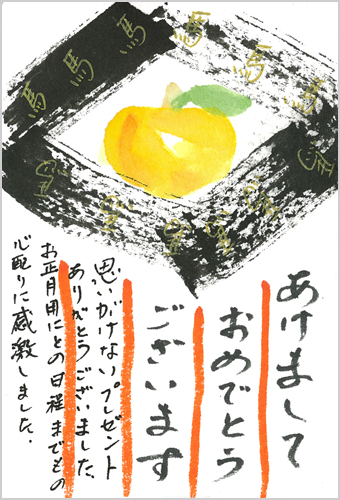 馬 馬 馬 馬 馬 馬 馬
あけまして
おめでとう
ございます
思いがけないプレゼント
ありがとうございました、
お正月用にとの日程までもの
心配りに感激しました。